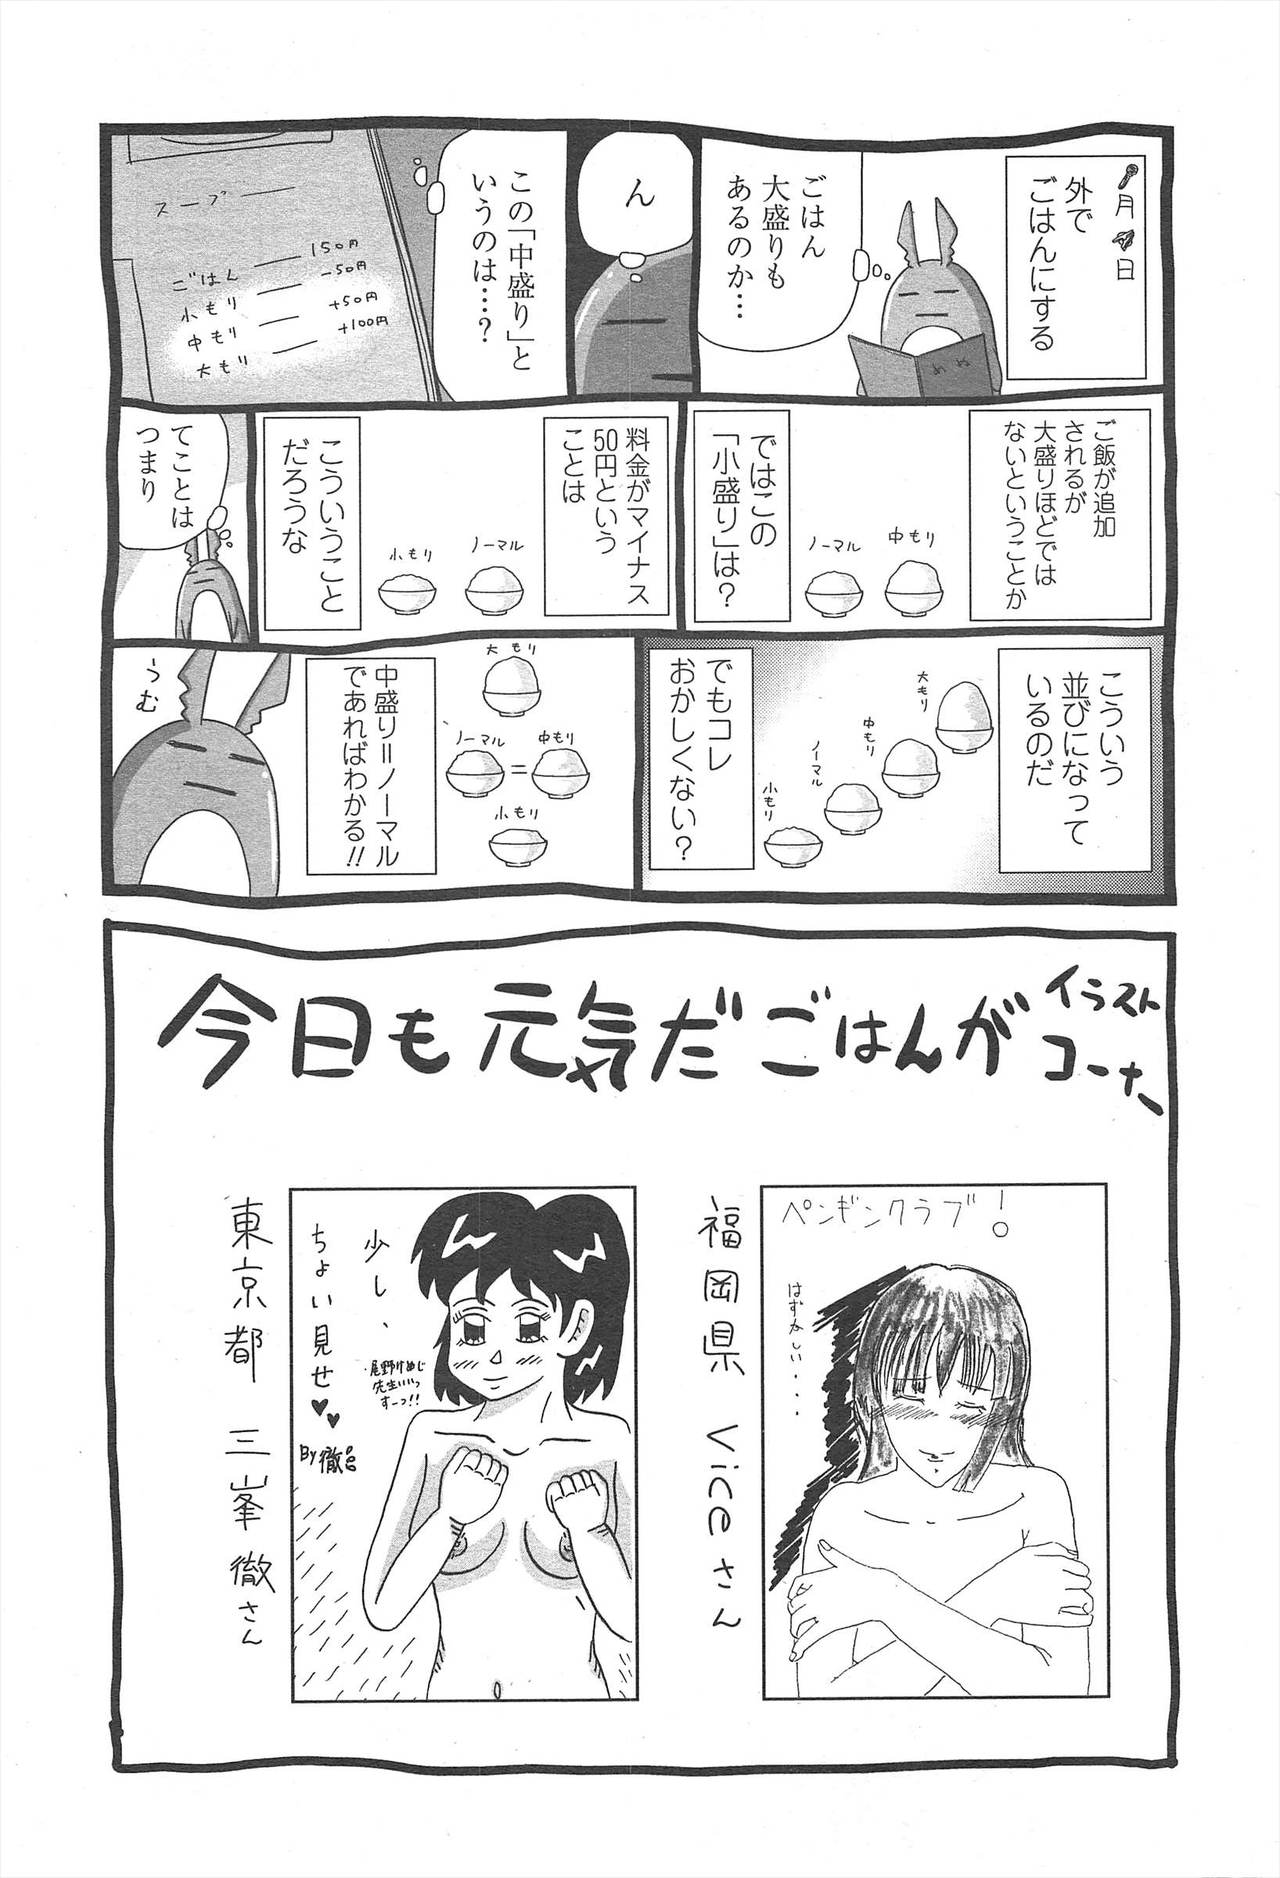 月 日
外で
ごはんにする
めぬ
ごはん
大盛りも
あるのか…
ん
この「中盛り」と
いうのは…?
スープ
ごはん 150円
小もり -50円
中もり +50円
大もり +100円
ご飯が追加
されるが
大盛りほどでは
ないということか
中もり
ノーマル
ではこの
「小盛り」は?
料金がマイナス
50円という
ことは
ノーマル
小もり
こういうこと
だろうな
てことは
つまり
こういう
並びになって
いるのだ
大もり
中もり
ノーマル
小もり
でもコレ
おかしくない?
大もり
ノーマル = 中もり
小もり
中盛り=ノーマル
であればわかる!!
うむ
今日も元気だごはんが
イラスト
コーナー
ペンギンクラブ!
はずかしい・・・・
福岡県 Viceさん
少し、
ちょい見せ♥♥
尾野けぬじ
先生いいっ
すーっ!!
By 徹
東京都 三峯徹さん